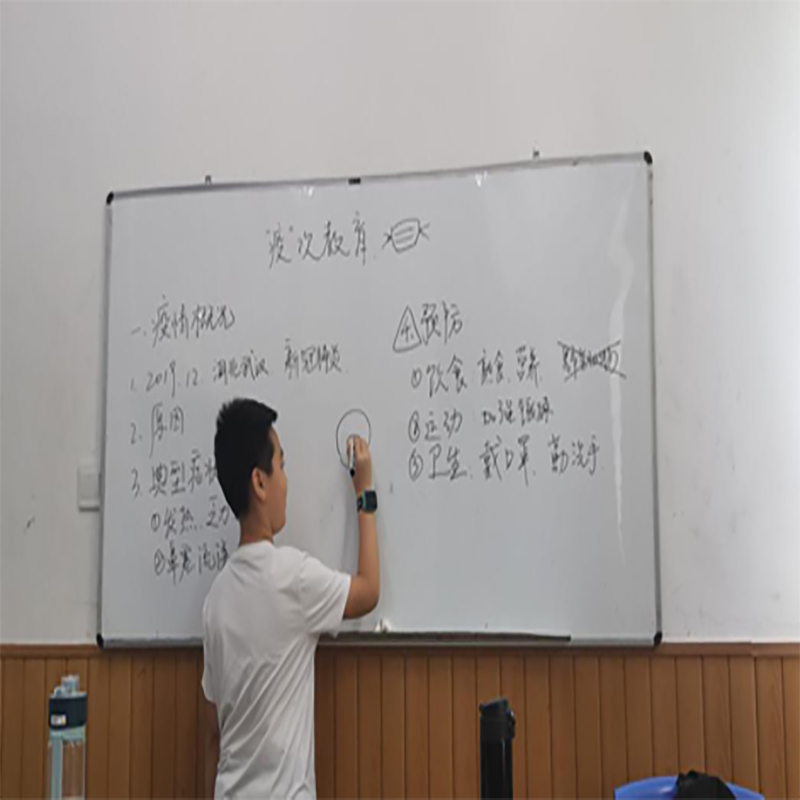 "疫"次教育
一.疫情概况
1. 2019.12. 湖北武汉 新冠肺炎
2. 原因
3. 典型症状
①发热.乏力
②鼻塞流涕
预防
①饮食 熟食.营养
②运动 加强锻炼
③卫生.戴口罩.勤洗手